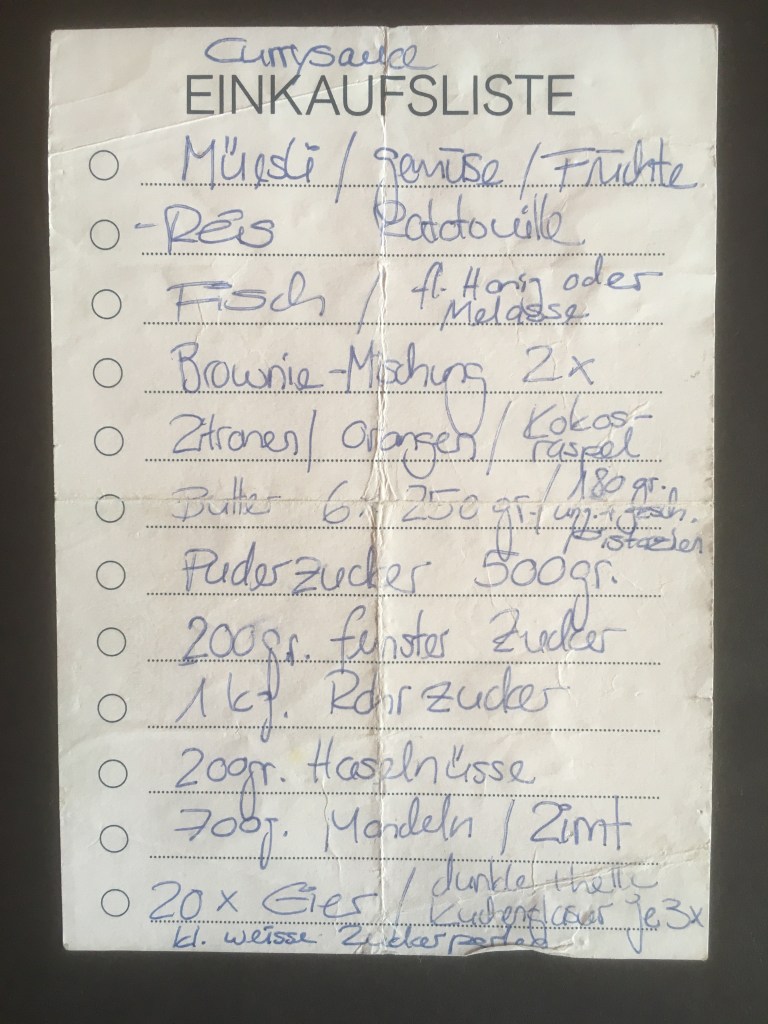 Currysauce
EINKAUFSLISTE
Müesli / Gemüse / Früchte
- Reis Ratatouille
Fisch / fl. Honig oder
Melasse
Brownie-Mischung 2x
Zitronen / Orangen / Kokos-
raspel
Butter 6 x 250 gr. / 180 gr.
ung. + gesch.
Pistazien
Puderzucker 500gr.
200gr. feinster Zucker
1 kg. Rohrzucker
200gr. Haselnüsse
700g. Mandeln / Zimt
20 x Eier / dunkle + helle
Kuchenglasur je 3x
kl. weisse Zuckerperlen